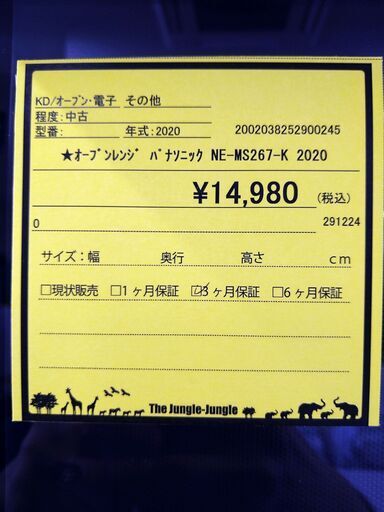 KD/ｵｰﾌﾞﾝ･電子 その他
程度:中古
型番: 年式:2020 2002038252900245
★ｵｰﾌﾞﾝﾚﾝｼﾞ ﾊﾟﾅｿﾆｯｸ NE-MS267-K 2020
¥14,980 (税込)
0 291224
サイズ:幅 奥行 高さ cm
□現状販売 □1ヶ月保証 ☑3ヶ月保証 □6ヶ月保証
The Jungle-Jungle